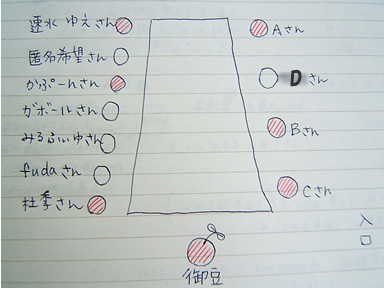 速水ゆえさん
匿名希望さん
かぷーんさん
ガボールさん
みるふぃゆさん
fudaさん
杜季さん
Aさん
Dさん
Bさん
Cさん
入
口
御豆